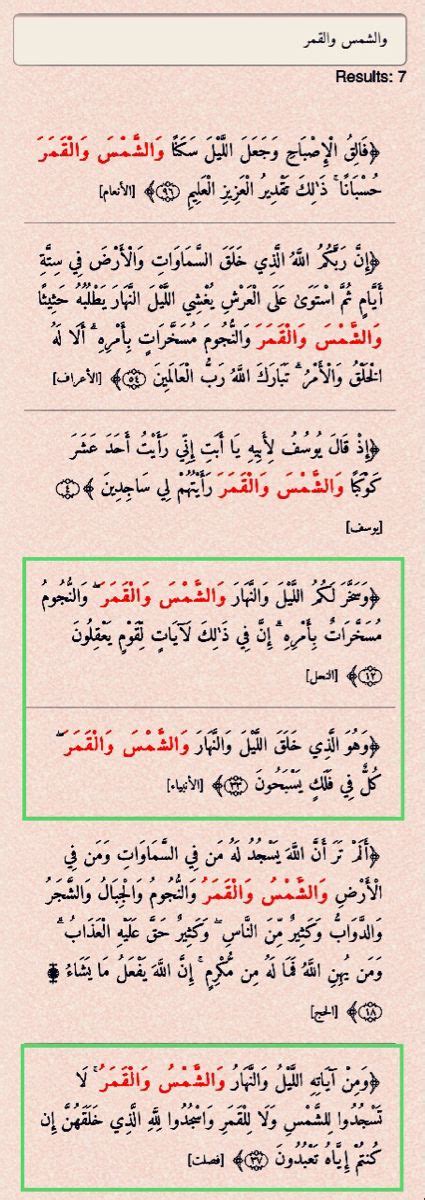 والشمس والقمر
Results: 7
﴿فَالِقُ الْإِصْبَاحِ وَجَعَلَ اللَّيْلَ سَكَنًا وَالشَّمْسَ وَالْقَمَرَ
حُسْبَانًا ۚ ذَٰلِكَ تَقْدِيرُ الْعَزِيزِ الْعَلِيمِ ﴿٩٦﴾ [الأنعام]
﴿إِنَّ رَبَّكُمُ اللَّهُ الَّذِي خَلَقَ السَّمَاوَاتِ وَالْأَرْضَ فِي سِتَّةِ
أَيَّامٍ ثُمَّ اسْتَوَىٰ عَلَى الْعَرْشِ يُغْشِي اللَّيْلَ النَّهَارَ يَطْلُبُهُ حَثِيثًا
وَالشَّمْسَ وَالْقَمَرَ وَالنُّجُومَ مُسَخَّرَاتٍ بِأَمْرِهِ ۗ أَلَا لَهُ
الْخَلْقُ وَالْأَمْرُ ۗ تَبَارَكَ اللَّهُ رَبُّ الْعَالَمِينَ ﴿٥٤﴾ [الأعراف]
﴿إِذْ قَالَ يُوسُفُ لِأَبِيهِ يَا أَبَتِ إِنِّي رَأَيْتُ أَحَدَ عَشَرَ
كَوْكَبًا وَالشَّمْسَ وَالْقَمَرَ رَأَيْتُهُمْ لِي سَاجِدِينَ ﴿٤﴾
[يوسف]
﴿وَسَخَّرَ لَكُمُ اللَّيْلَ وَالنَّهَارَ وَالشَّمْسَ وَالْقَمَرَ ۖ وَالنُّجُومُ
مُسَخَّرَاتٌ بِأَمْرِهِ ۗ إِنَّ فِي ذَٰلِكَ لَآيَاتٍ لِّقَوْمٍ يَعْقِلُونَ
﴿١٢﴾ [النحل]
﴿وَهُوَ الَّذِي خَلَقَ اللَّيْلَ وَالنَّهَارَ وَالشَّمْسَ وَالْقَمَرَ ۖ
كُلٌّ فِي فَلَكٍ يَسْبَحُونَ ﴿٣٣﴾ [الأنبياء]
﴿أَلَمْ تَرَ أَنَّ اللَّهَ يَسْجُدُ لَهُ مَن فِي السَّمَاوَاتِ وَمَن فِي
الْأَرْضِ وَالشَّمْسُ وَالْقَمَرُ وَالنُّجُومُ وَالْجِبَالُ وَالشَّجَرُ
وَالدَّوَابُّ وَكَثِيرٌ مِّنَ النَّاسِ ۖ وَكَثِيرٌ حَقَّ عَلَيْهِ الْعَذَابُ ۗ
وَمَن يُهِنِ اللَّهُ فَمَا لَهُ مِن مُّكْرِمٍ ۚ إِنَّ اللَّهَ يَفْعَلُ مَا يَشَاءُ ۩
﴿١٨﴾ [الحج]
﴿وَمِنْ آيَاتِهِ اللَّيْلُ وَالنَّهَارُ وَالشَّمْسُ وَالْقَمَرُ ۚ لَا
تَسْجُدُوا لِلشَّمْسِ وَلَا لِلْقَمَرِ وَاسْجُدُوا لِلَّهِ الَّذِي خَلَقَهُنَّ إِن
كُنتُمْ إِيَّاهُ تَعْبُدُونَ ﴿٣٧﴾ [فصلت]